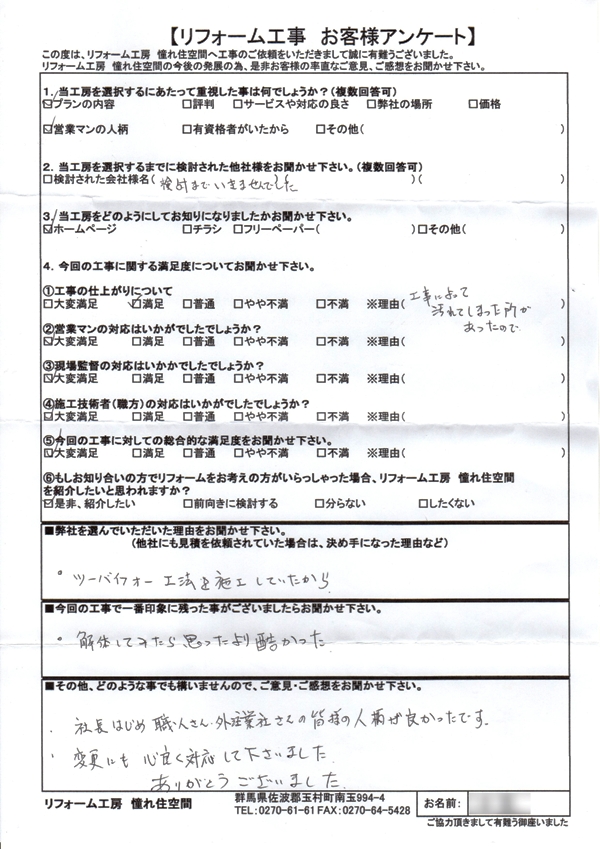 【リフォーム工事　お客様アンケート】
この度は、リフォーム工房　憧れ住空間へ工事のご依頼をいただきまして誠に有難うございました。
リフォーム工房　憧れ住空間の今後の発展の為、是非お客様の率直なご意見、ご感想をお聞かせ下さい。
1．当工房を選択するにあたって重視した事は何でしょうか？（複数回答可）
☑プランの内容　□評判　□サービスや対応の良さ　□弊社の場所　□価格
☑営業マンの人柄　□有資格者がいたから　□その他（　）
2．当工房を選択するまでに検討された他社様をお聞かせ下さい。（複数回答可）
□検討された会社様名（検討まではいきませんでした）（　）
3．当工房をどのようにしてお知りになりましたかお聞かせ下さい。
☑ホームページ　□チラシ　□フリーペーパー（　）□その他（　）
4．今回の工事に関する満足度についてお聞かせ下さい。
①工事の仕上がりについて
□大変満足　☑満足　□普通　□やや不満　□不満　※理由（工事によって
汚れてしまった所が
あったので　）
②営業マンの対応はいかがでしたでしょうか？
☑大変満足　□満足　□普通　□やや不満　□不満　※理由（　）
③現場監督の対応はいかかでしたでしょうか？
☑大変満足　□満足　□普通　□やや不満　□不満　※理由（　）
④施工技術者（職方）の対応はいかがでしたでしょうか？
☑大変満足　□満足　□普通　□やや不満　□不満　※理由（　）
⑤今回の工事に対しての総合的な満足度をお聞かせ下さい。
☑大変満足　□満足　□普通　□やや不満　□不満　※理由（　）
⑥もしお知り合いの方でリフォームをお考えの方がいらっしゃった場合、リフォーム工房　憧れ住空間
を紹介したいと思われますか？
☑是非、紹介したい　□前向きに検討する　□分らない　□したくない
■弊社を選んでいただいた理由をお聞かせ下さい。
（他社にも見積を依頼されていた場合は、決め手になった理由など）
ツーバイフォー工法を施工していたから
■今回の工事で一番印象に残った事がございましたらお聞かせ下さい。
解体してみたら思ったより酷かった
■その他、どのような事でも構いませんので、ご意見・ご感想をお聞かせ下さい。
・社長はじめ職人さん、外注業社さんの皆様の人柄が良かったです。
・変更にも心良く対応して下さいました
ありがとうございました
リフォーム工房　憧れ住空間
群馬県佐波郡玉村町南玉994-4
TEL：0270-61-61 FAX：0270-64-5428
お名前：
ご協力頂きまして有難う御座いました